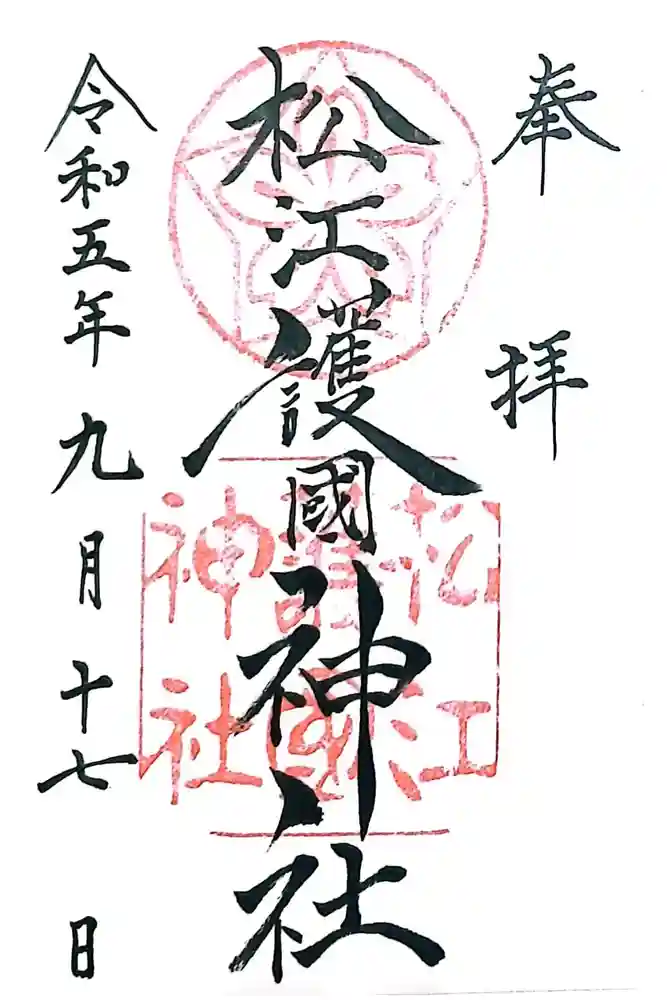 奉拝
松江護國神社
令和五年九月十七日
松江護國神社